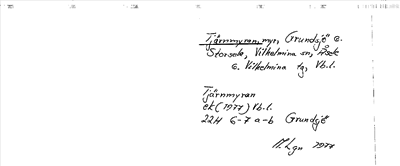 Tjärnmyran, myr, Grundsjö e.
Storsele, Vilhelmina sn, Åsele
o. Vilhelmina tg, Vb.l.
Tjärnmyran
ek (1977) Vb.l.
22H 6-7 a-b Grundsjö
1977